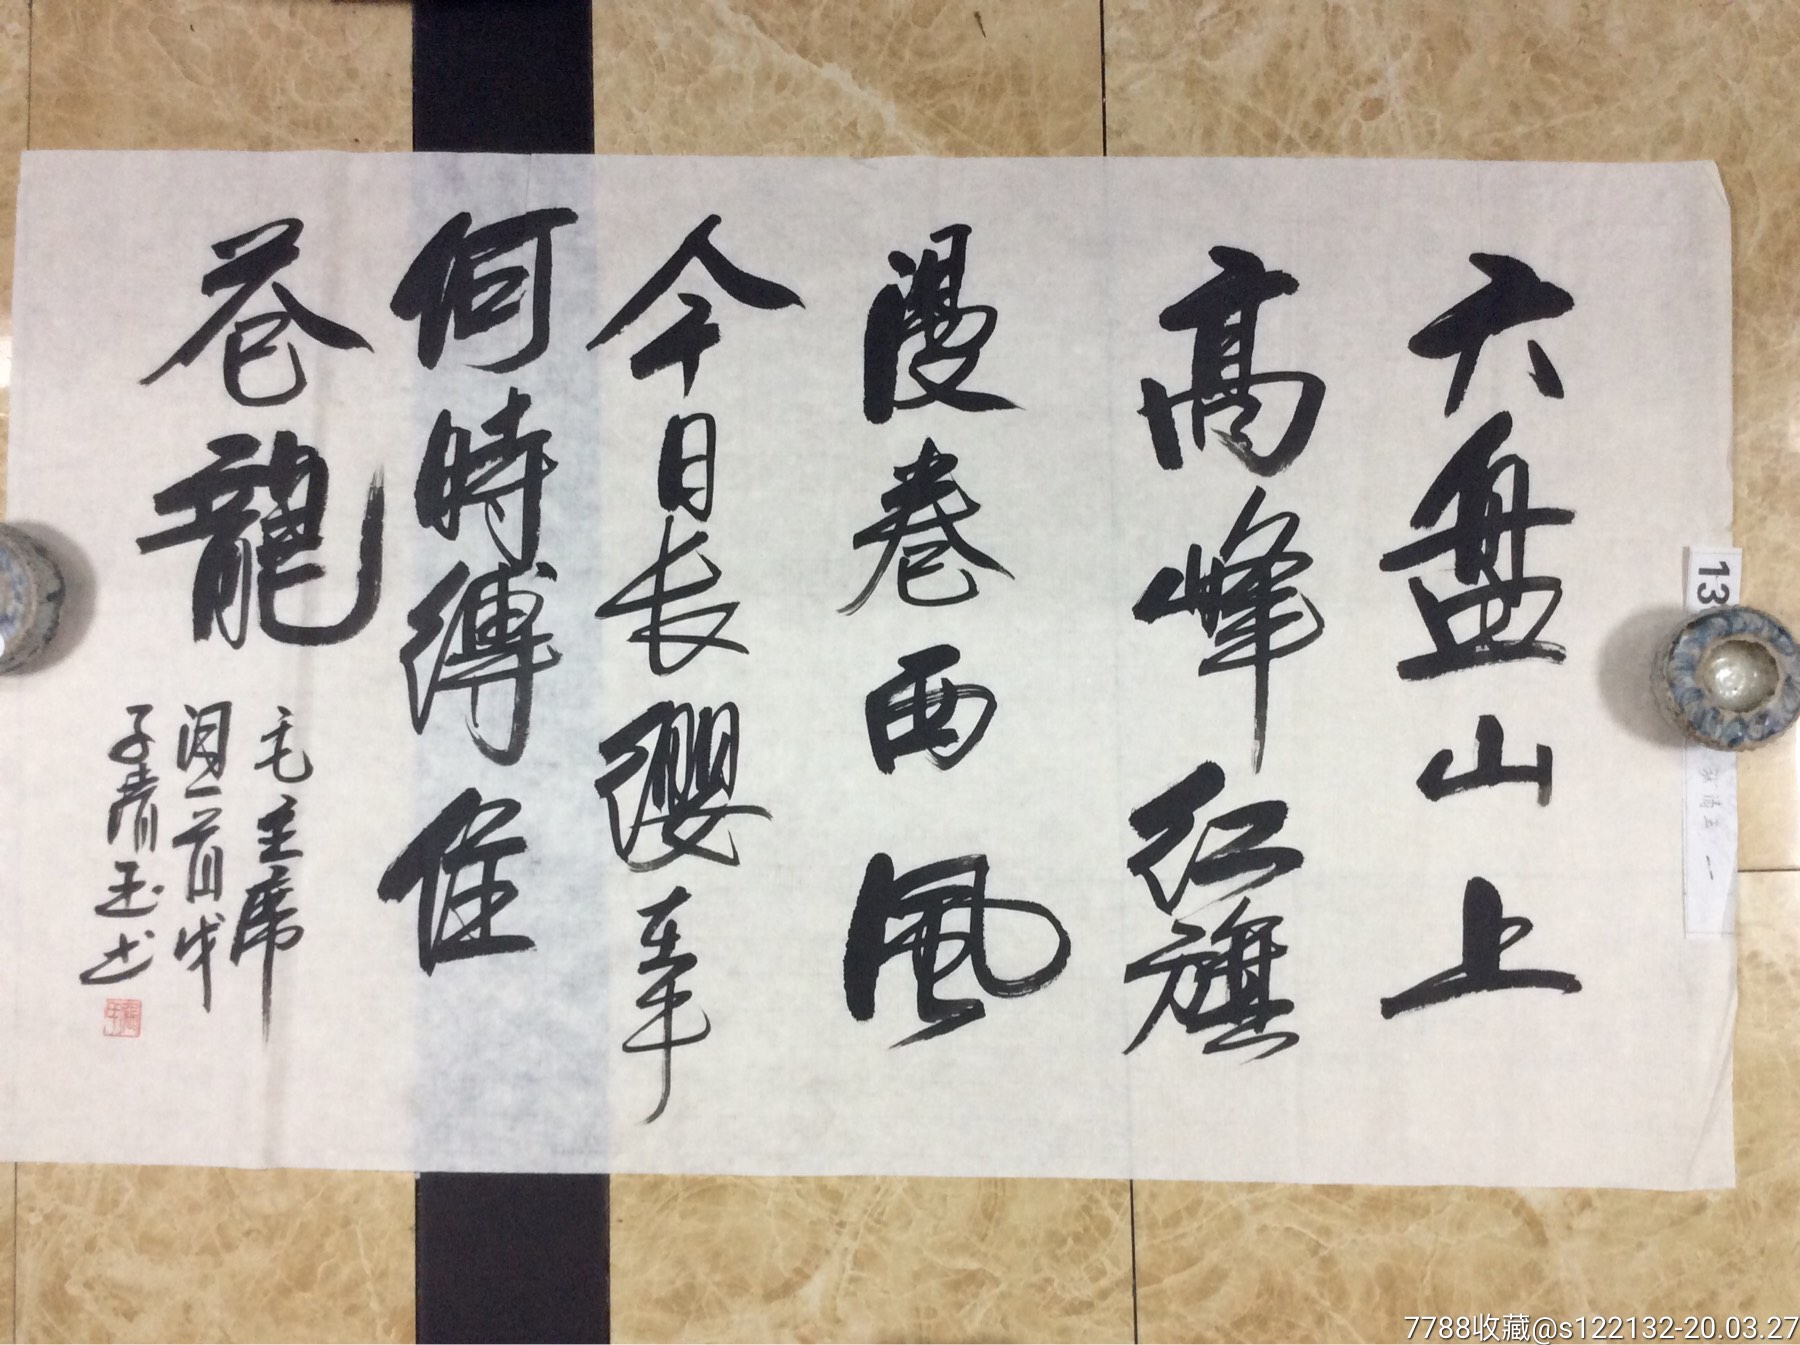 六盘山上
高峰红旗
漫卷西风
今日长缨在手
何時缚住
苍龍
毛主席
词一首戊
子清玉书
13
7788收藏@s122132-20.03.27